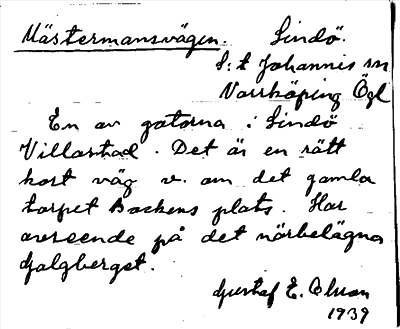 Mästermansvägen. Lindö.
S:t Johannis sn
Norrköping Ögl
En av gatorna i Lindö
Villastad. Det är en rätt
kort väg v. om det gamla
torpet Backens plats. Har
avseende på det närbelägna
Galgberget.
Gustaf E. Olson
1939